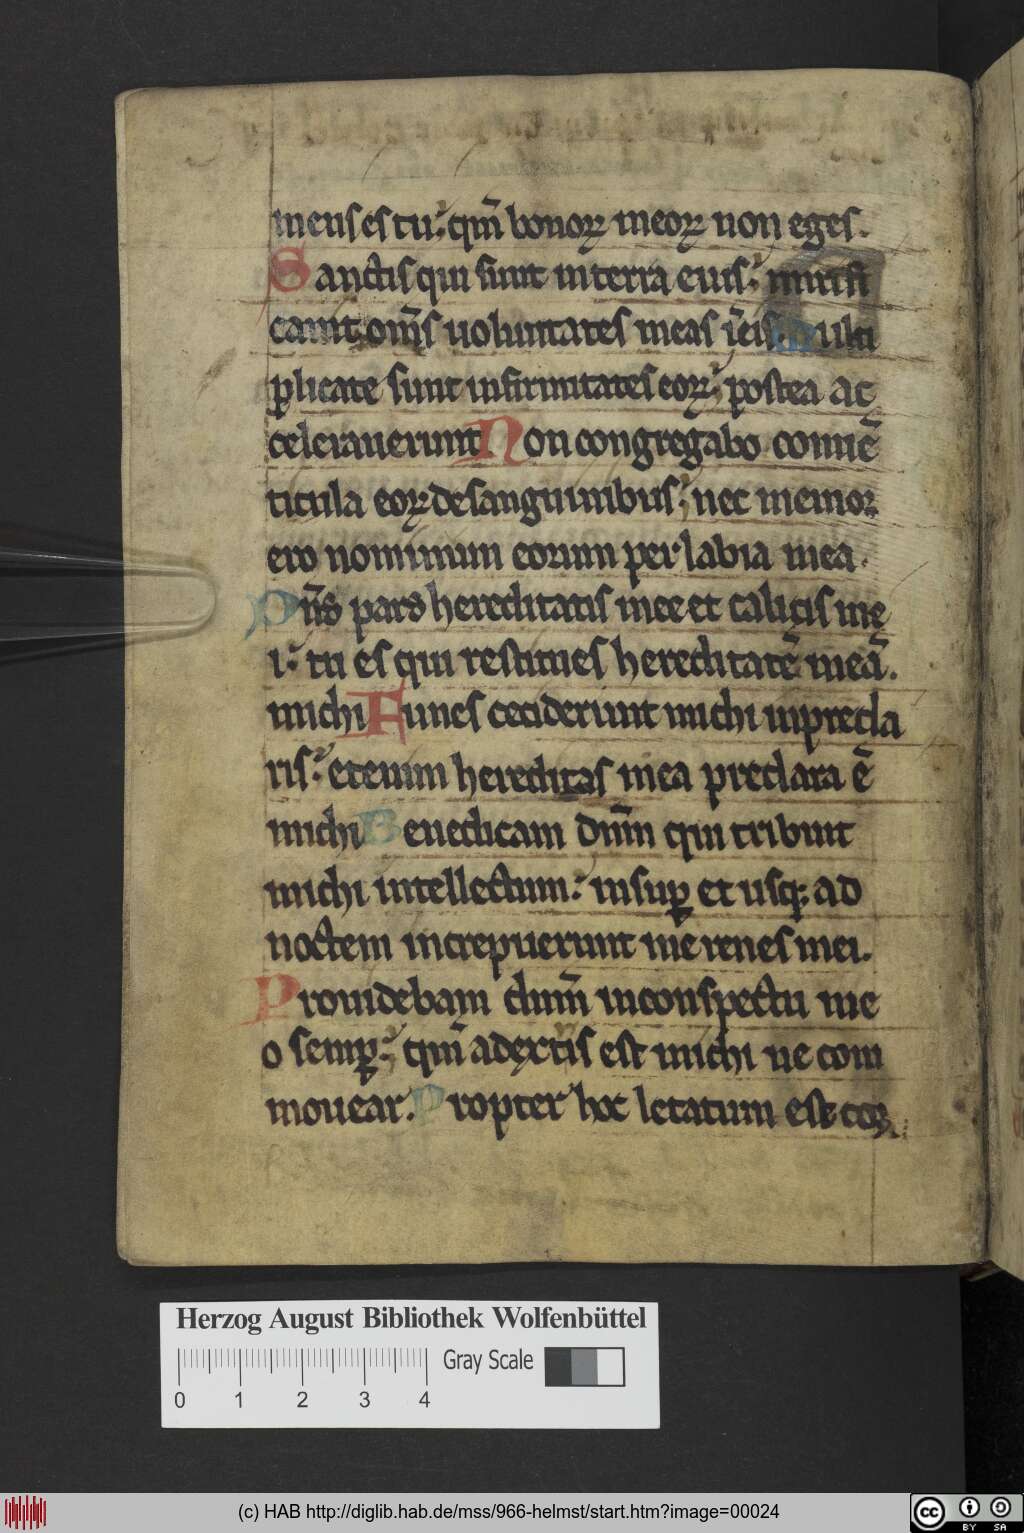 meus es tu. qm̄ bonoꝝ meoꝝ non eges.
Sanctis qui sunt in terra eius. mirifi
cauit om̄s uoluntates meas ī eis. Multi
plicate sunt infirmitates eoꝝ. postea ac
celerauerunt Non congregabo conuē
ticula eoꝝ de sanguinibus. nec memor
ero nominum eorum per labia mea.
Dn̄s pars hereditatis mee et calicis mę
i. tu es qui restitues hereditatē meā.
michi Funes ceciderunt michi inprecla
ris. etenim hereditas mea preclara ē
michi Benedicam dnm̄ qui tribuit
michi intellectum. insuꝑ et usq; ad
noctem increpuerunt me renes mei.
Prouidebam dnm̄ in conspectu me
o semꝑ. qm̄ adextris est michi ne com
mouear. Propter hoc letatum est coꝝ
Herzog August Bibliothek Wolfenbüttel
Gray Scale
0 1 2 3 4
(c) HAB http://diglib.hab.de/mss/966-helmst/start.htm?image=00024
cc BY SA